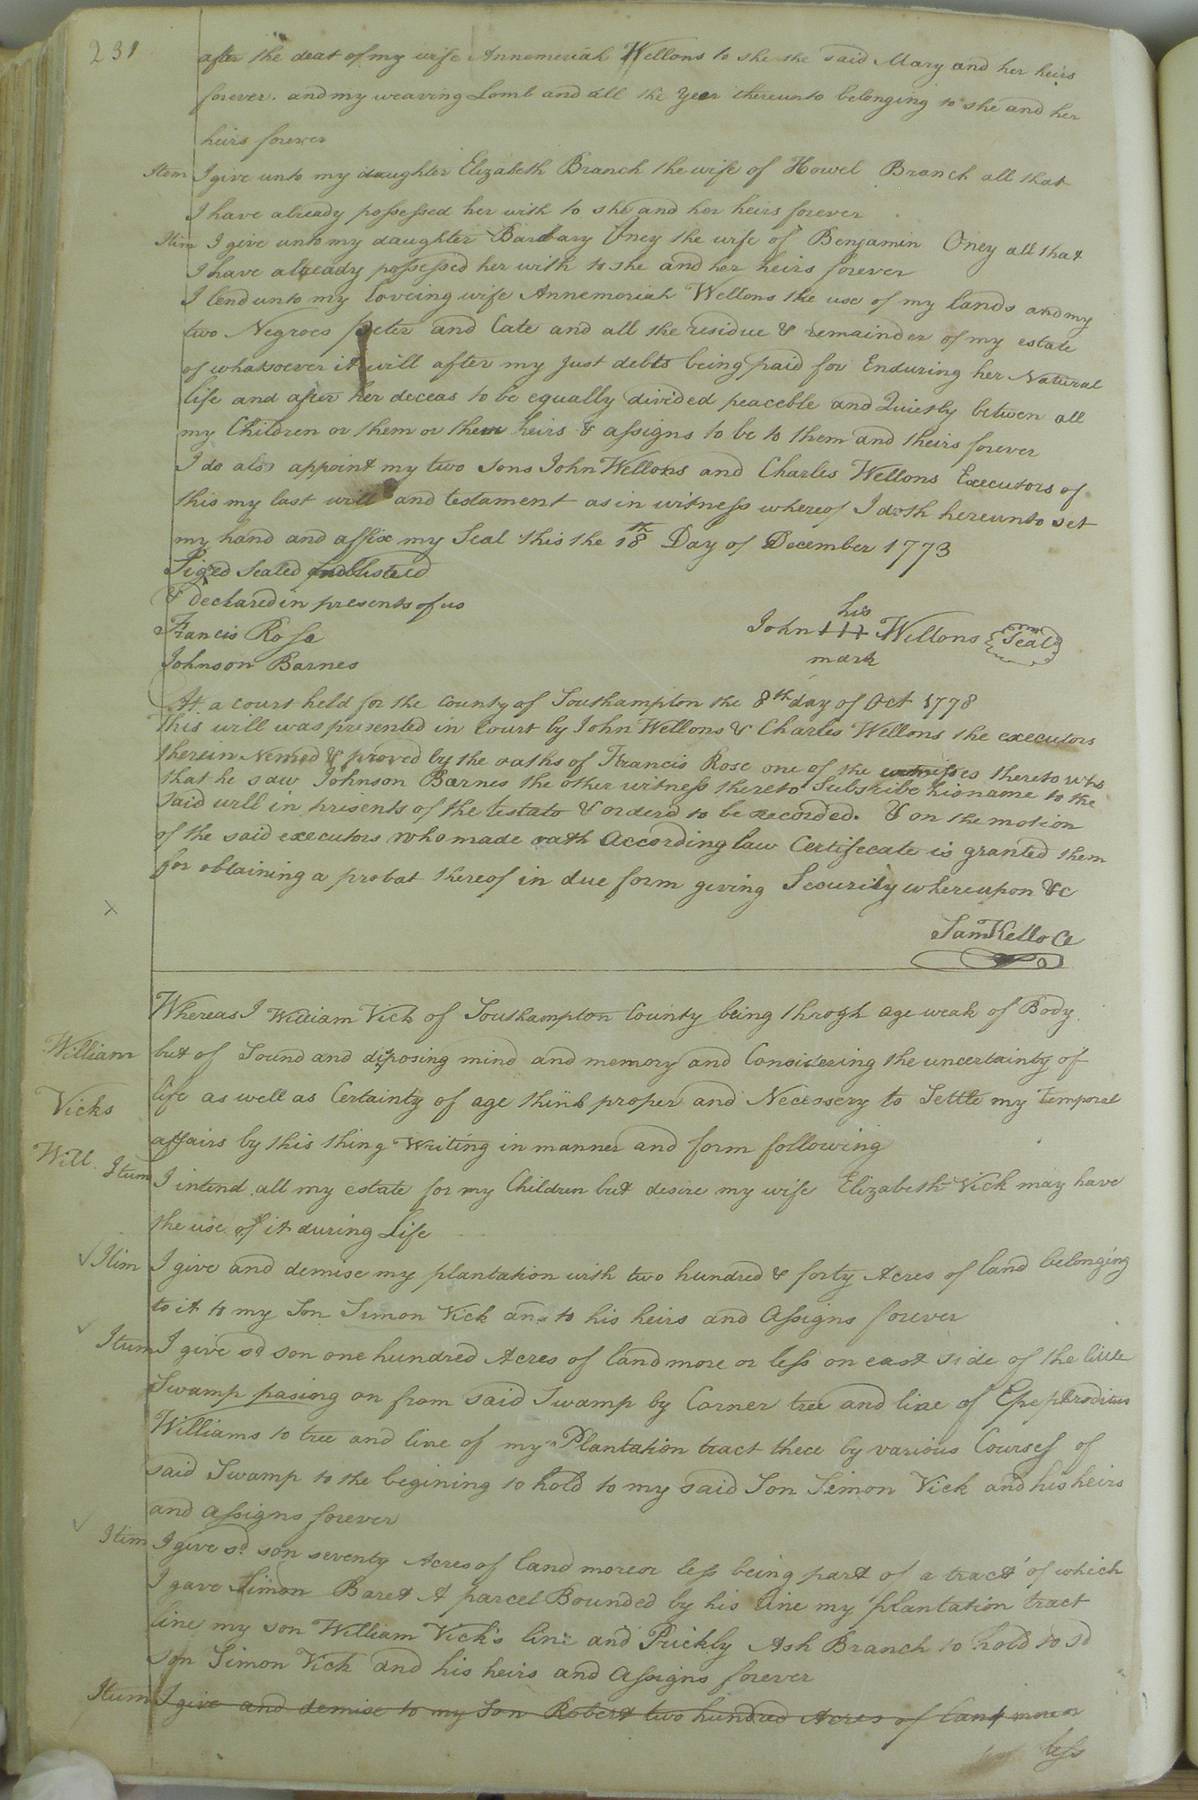 231
after the deat of my wife Annemeriah Wellons to she the said Mary and her heirs
forever. and my weaving Lomb and all the Year thereunto belonging to she and her
heirs forever
Item I give unto my daughter Elizabeth Branch the wife of Howel Branch all that
I have already possessed her with to she and her heirs forever
Itim I give unto my daughter Barbary Oney the wife of Benjamin Oney all that
I have already possessed her with to she and her heirs forever
I lend unto my loveing wife Annemoriah Wellons the use of my lands and my
two Negroes peter and Cate and all the residue & remainder of my estate
of whatsoever it will after my just debts being paid for Enduring her Natural
life and after her deceas to be equally divided peaceble and Quietly betwen all
my Children or them or them heirs & assigns to be to them and theirs forever
I do also appoint my two sons John Wellons and Charles Wellons Executors of
this my last will and testament as in witness whereof I doth hereunto set
my hand and affix my Seal this the 18th Day of December 1773
Siged Sealed published
& declared in presents of us
Francis Rose
Johnson Barnes
his
John +++ Wellons Seal
mark
At a court held for the county of Southampton the 8th day of Oct 1778
This will was presented in Court by John Wellons & Charles Wellons the executors
therein Nemed & proved by the oaths of Francis Rose one of the witnesses thereto who
that he saw Johnson Barnes the other witness thereto Subscribe his name to the
said will in presents of the testato & orderd to be recorded. & on the motion
of the said executors who made oath According law Certifecate is granted them
for oblaining a probat thereof in due form giving Security whereupon &c
Sam Kello Cl
x
William
Vicks
Will.
Whereas I William Vick of Southampton County being throgh age weak of Body
but of Sound and disposing mind and memory and Considering the uncertainty of
life as well as Certainty of age think proper and Necessery to Settle my Temporal
affairs by this thing Writing in manner and form following
Itum I intend all my estate for my Children but desire my wife Elizabeth Vick may have
the use of it during Life
Itim I give and demise my plantation with two hundred & forty Acres of land belonging
to it to my Son Simon Vick and to his heirs and Assigns forever
Itum I give sd son one hundred Acres of land more or less on east side of the little
Swamp pasiong on from said Swamp by Corner tree and line of Epephroditus
Williams to tree and line of my Plantation tract thece by various Courses of
said Swamp to the begining to hold to my said Son Simon Vick and his heirs
and assigns forever
Itim I give sd son seventy Acres of land more or less being part of a tract of which
I gave Simon Baret A parcel Bounded by his line my plantation tract
line my son William Vick's line and Prickly Ash Branch to hold to sd
son Simon Vick and his heirs and Assigns forever
Itum I give and demise to my Son Robert two hundred Acres of land more or
less